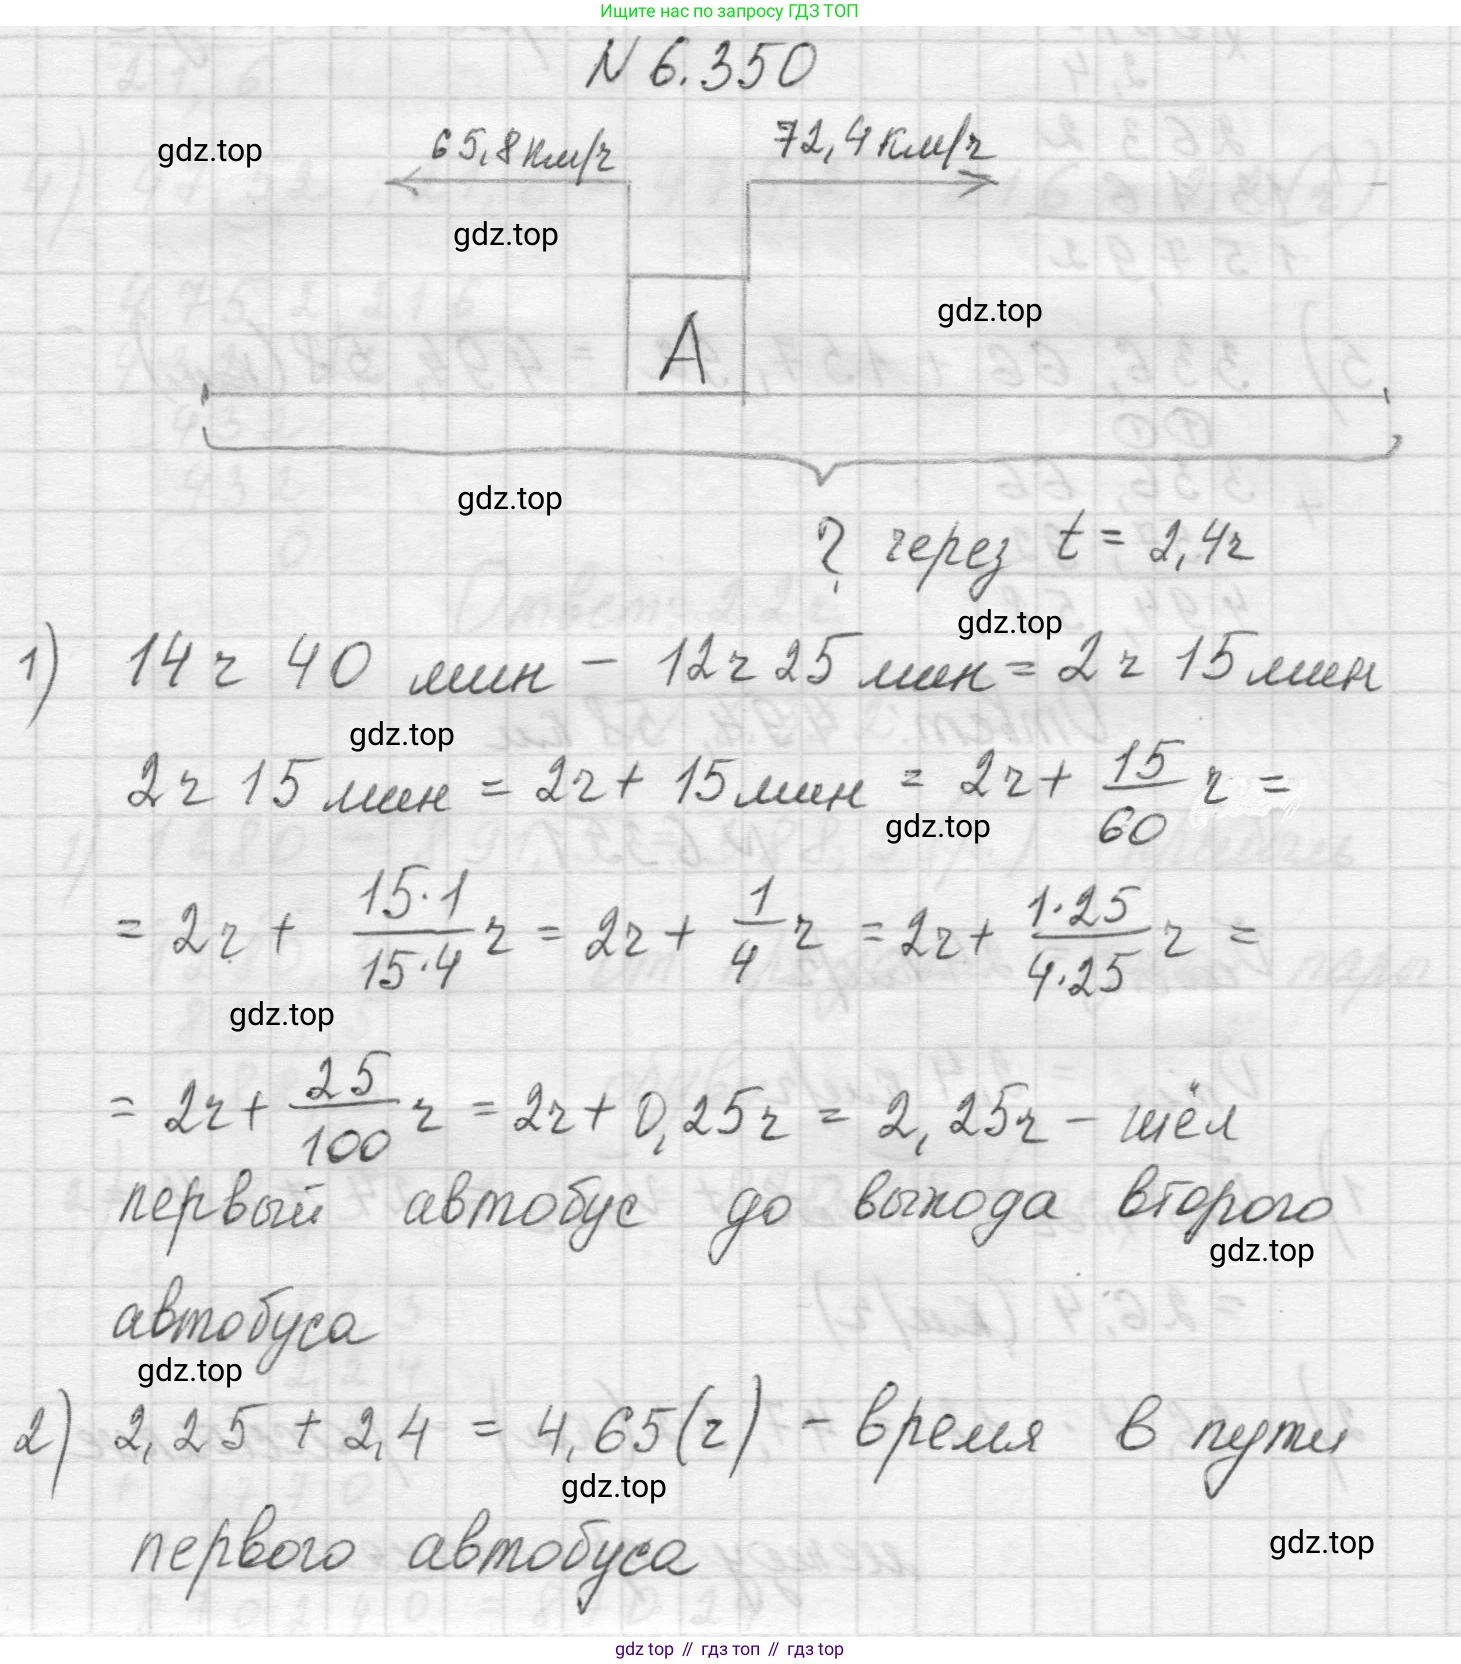 Ищите нас по запросу ГДЗ ТОП
N 6.350
65,8 км/ч 72,4 км/ч
gdz.top
gdz.top
gdz.top
А
gdz.top
? через t = 2,4ч
gdz.top
1) 14 ч 40 мин – 12ч 25 мин = 2 ч 15 мин
gdz.top
2ч 15 мин = 2ч + 15 мин = 2ч + 15/60 ч =
gdz.top
= 2ч + 15·1/15·4 ч = 2ч + 1/4 ч = 2ч + 1·25/4·25 ч =
gdz.top
= 2ч + 25/100 ч = 2ч + 0,25ч = 2,25ч – шёл
первый автобус до выхода второго
gdz.top
автобуса
gdz.top
2) 2,25 + 2,4 = 4,65 (ч) – время в пути
gdz.top
первого автобуса
gdz.top
gdz top // гдз топ // гдз top